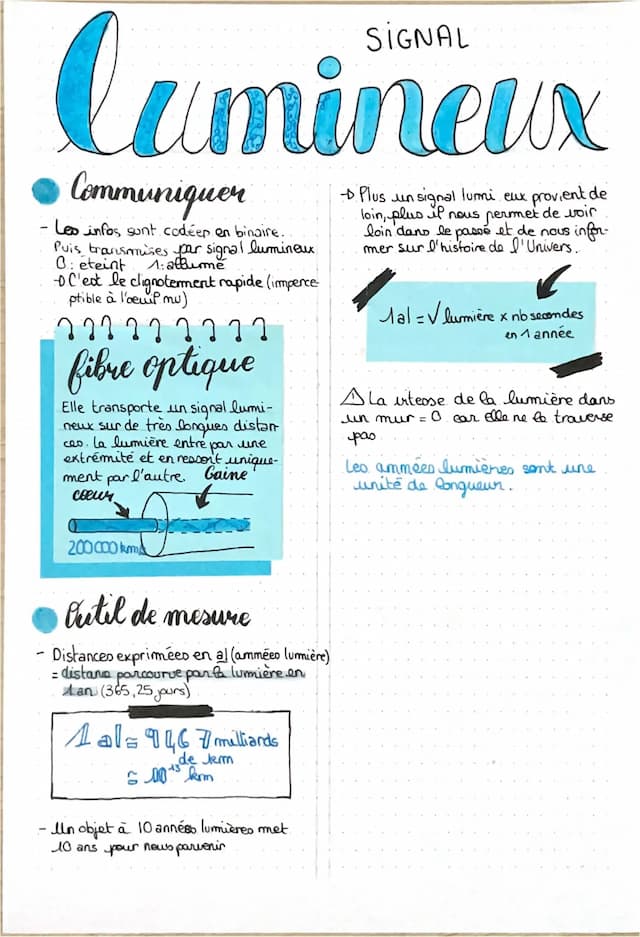 SIGNAL
lumineux
Communiquer
- Les infos sont codées en binaire.
Puis transmises par signal lumineux
0 : éteint 1 : allumé
→ C'est le clignotement rapide (imperce-
ptible à l'oeuil nu)
fibre optique
Elle transporte un signal lumi-
neux sur de très longues distan-
ces. La lumière entre par une
extrémité et en ressort unique-
ment par l'autre.
Gaine
coeur
200 000 km/s
Outil de mesure
- Distances exprimées en al (années lumière)
= distance parcourue par la lumière en
1 an (365,25 jours)
1 al = 9 467 milliards
de km
≈ 10¹³ km
- Un objet à 10 années lumières met
10 ans pour nous parvenir
→ Plus un signal lumi eux provient de
loin, plus il nous permet de voir
loin dans le passé et de nous infor-
mer sur l'histoire de l'Univers.
1 al = √ lumière × nb secondes
en 1 année
⚠ La vitesse de la lumière dans
un mur = 0 car elle ne le traverse
pas
Les années lumières sont une
unité de longueur.